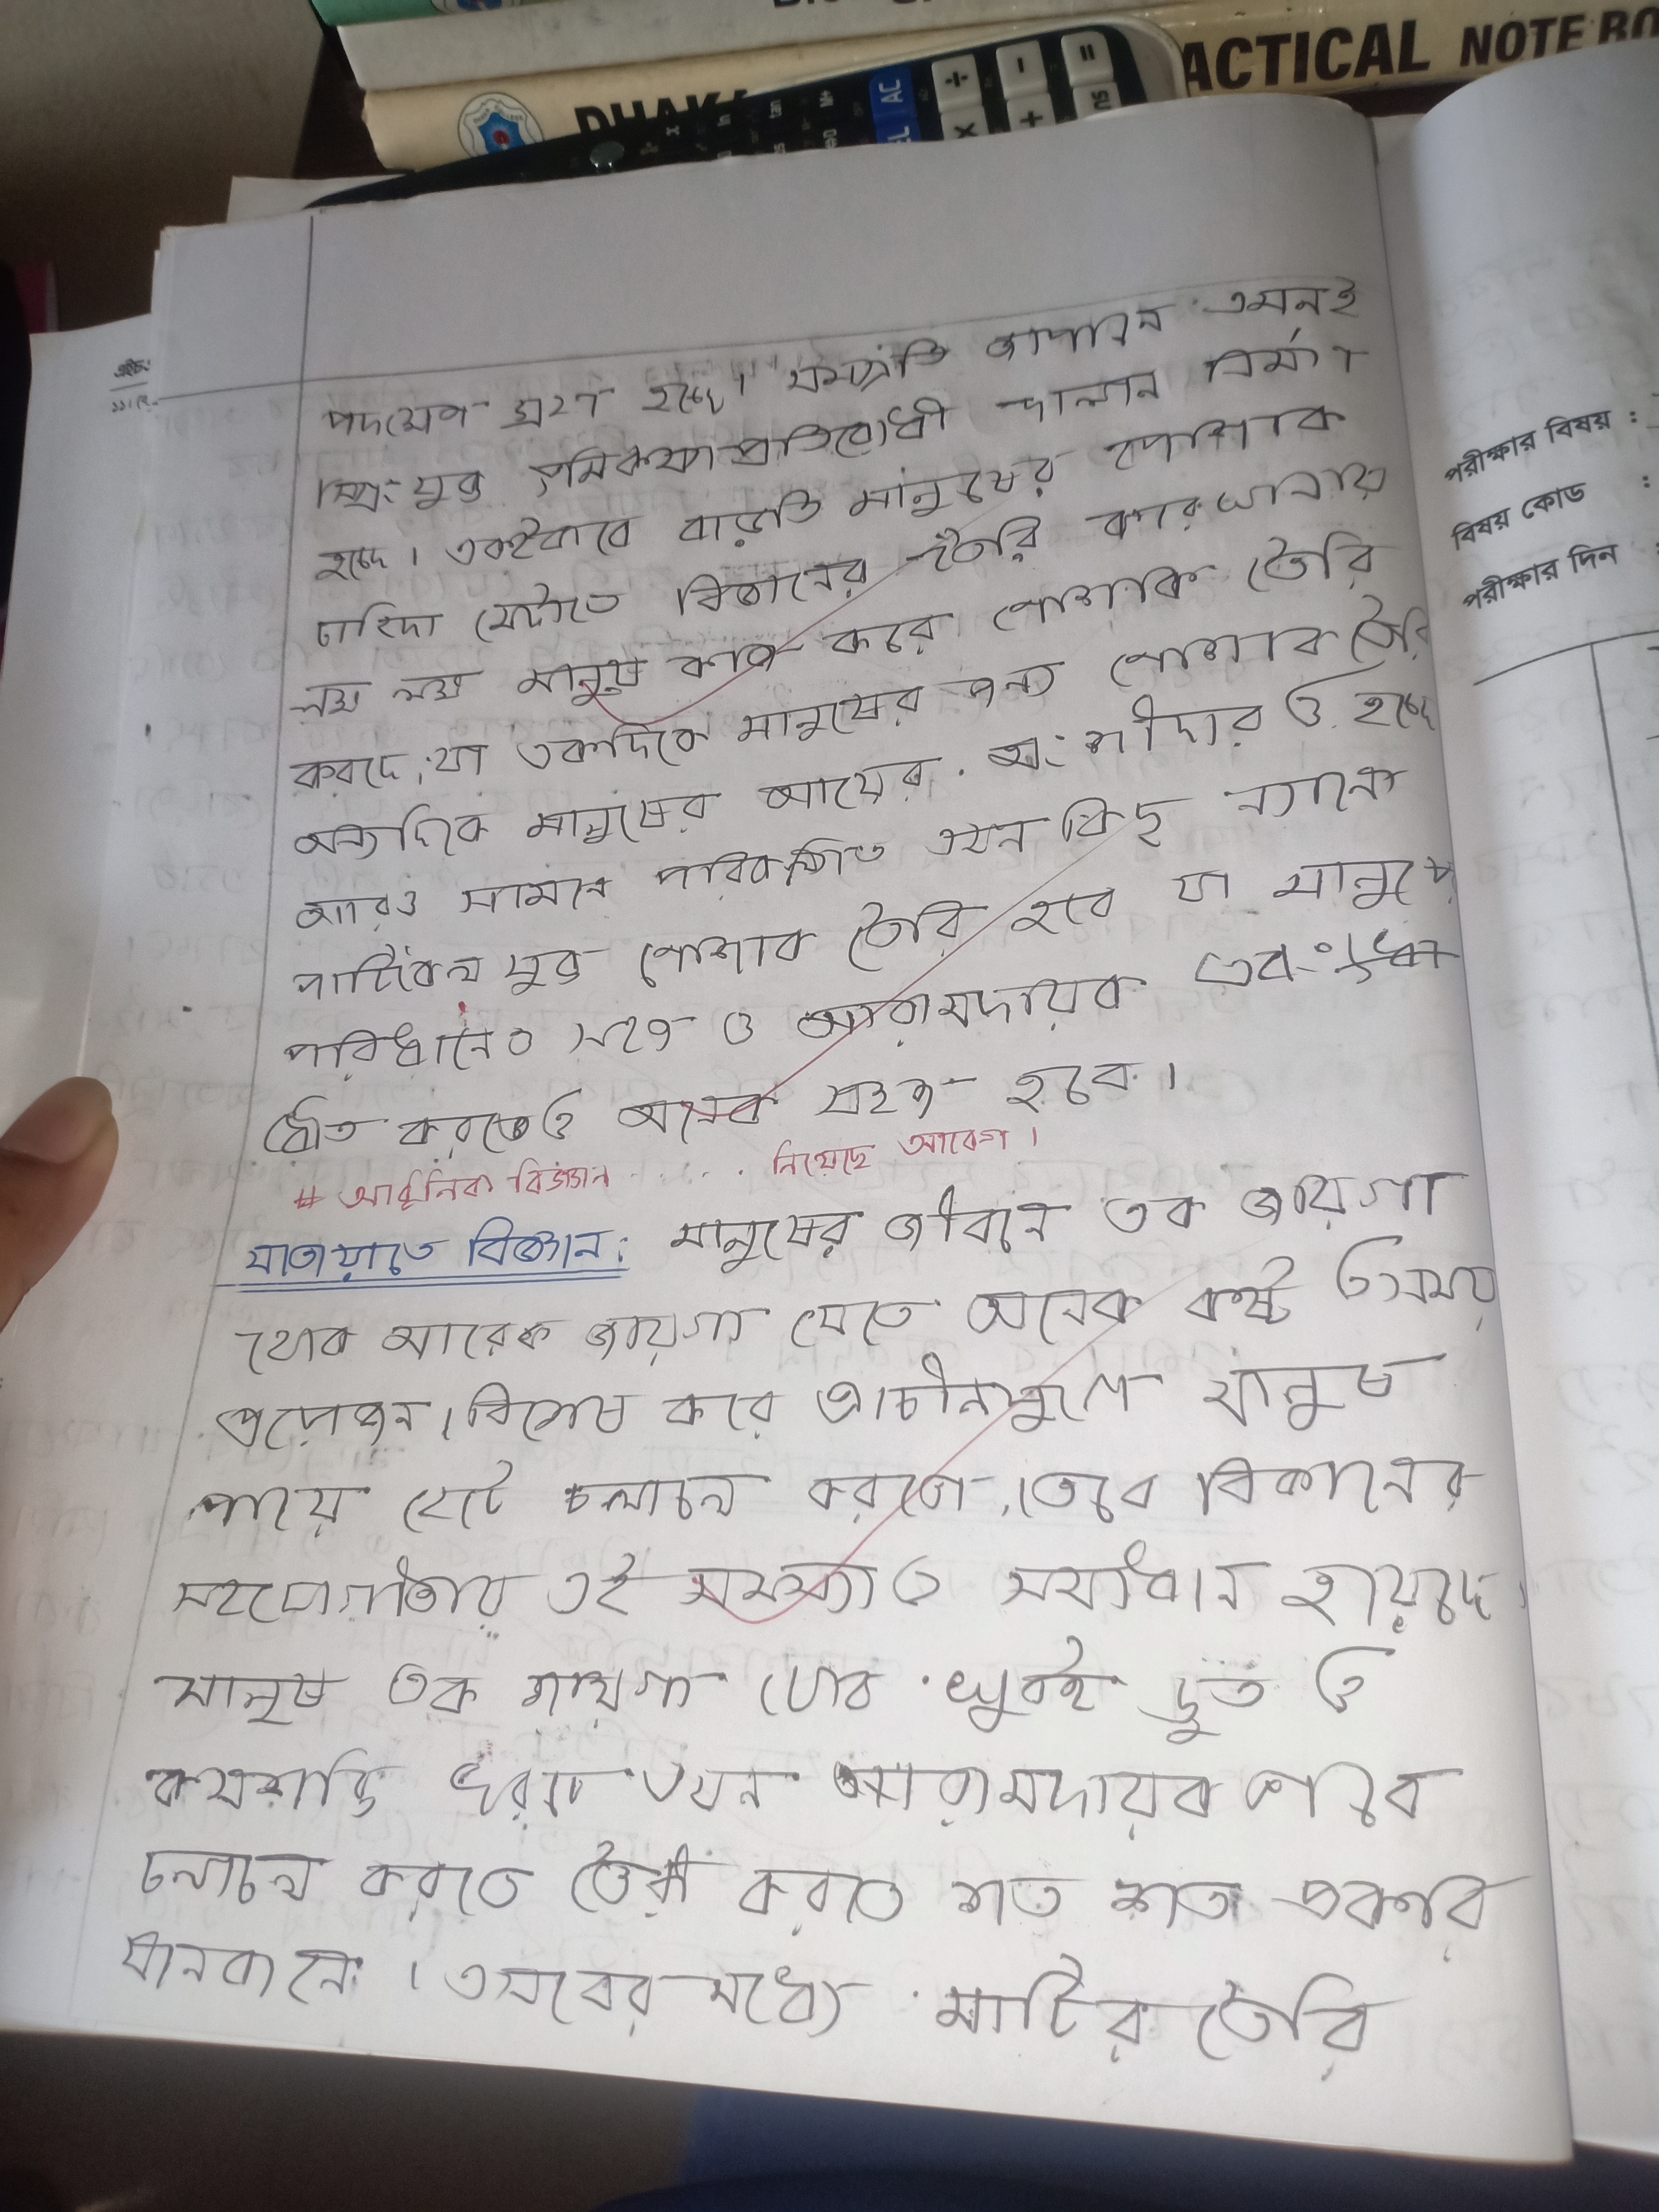 ACTICAL NOTE BO
DHAKA
পদক্ষেপ গ্রহণ হচ্ছে। সম্প্রতি জাপানে এমনই
স্প্রিংযুক্ত ভূমিকম্প প্রতিরোধী দালান নির্মাণ
হচ্ছে। একইভাবে বাড়তি মানুষের পোশাক
চাহিদা মেটাতে বিজ্ঞানের তৈরি কারখানায়
লক্ষ লক্ষ মানুষ কাজ করে পোশাক তৈরি
করছে, যা একদিকে মানুষের জন্য পোশাক তৈরি
অন্যদিকে মানুষের আয়ের অংশীদার ও হচ্ছে
আরও সামনে পরিকল্পিত এমন কিছু ন্যানো
পার্টিকেল যুক্ত পোশাক তৈরি হবে যা মানুষে
পরিধানেও সহজ ও আরামদায়ক এবং
ধৌত করতেও অনেক সহজ হবে।
# আধুনিক বিজ্ঞান ..... নিয়েছে আবেগ।
যাতায়াতে বিজ্ঞান: মানুষের জীবনে এক জায়গা
থেকে আরেক জায়গা যেতে অনেক কষ্ট ও সময়
প্রয়োজন। বিশেষ করে প্রাচীনযুগে মানুষ
পায়ে হেটে চলাচল করতো, তবে বিজ্ঞানের
সহযোগীতায় এই সমস্যাও সমাধান হয়েছে।
মানুষ এক জায়গা থেকে খুবই দ্রুত ও
কমশক্তি খরচে এখন আরামদায়ক ভাবে
চলাচল করতে তৈরী করতে শত শত প্রকার
যানবাহন। এসবের মধ্যে মাটির তৈরি
পরীক্ষার বিষয় :
বিষয় কোড :
পরীক্ষার দিন :